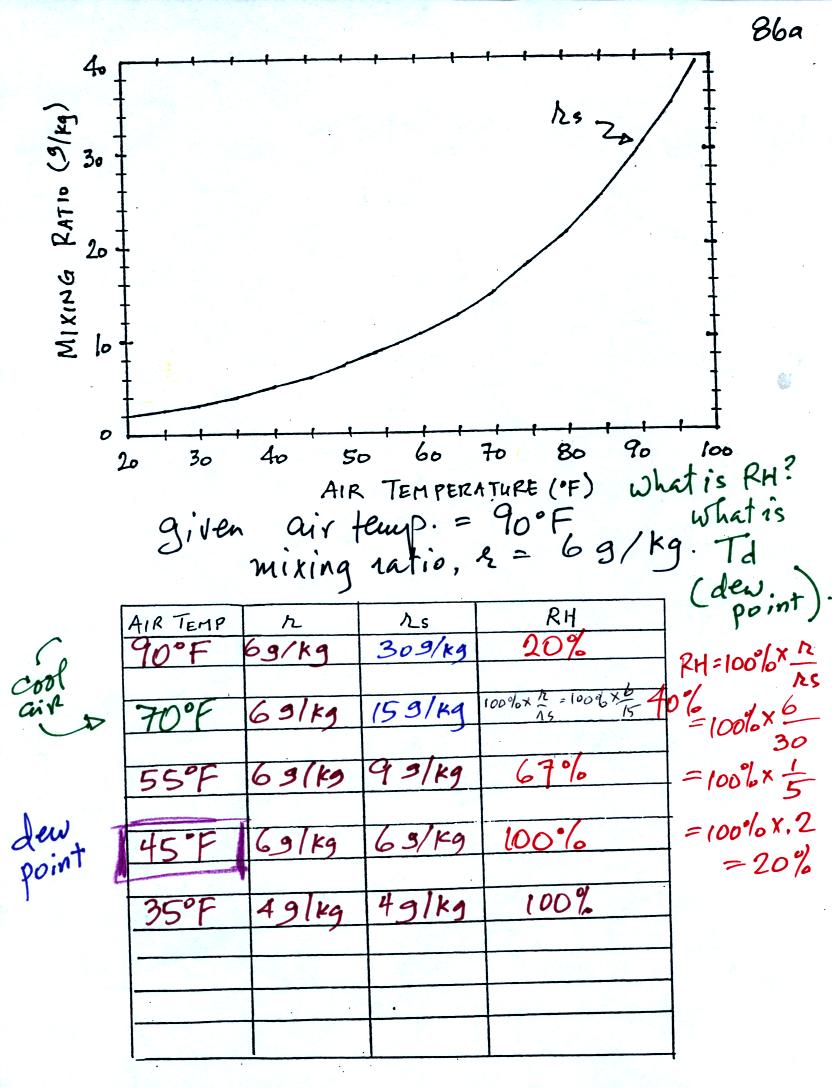 86a
40
30
20
10
0
MIXING RATIO (g/kg)
rs
20 30 40 50 60 70 80 90 100
AIR TEMPERATURE (°F)
what is RH?
given air temp. = 90°F
what is
mixing ratio, r = 6 g/kg.
Td
(dew point).
AIR TEMP r rs RH
90°F 6g/kg 30g/kg 20%
cool
air
70°F 6g/kg 15g/kg 100% x r/rs = 100% x 6/15 40%
55°F 6g/kg 9g/kg 67%
dew
point
45°F 6g/kg 6g/kg 100%
35°F 4g/kg 4g/kg 100%
RH = 100% x r/rs
= 100% x 6/30
= 100% x 1/5
= 100% x .2
= 20%